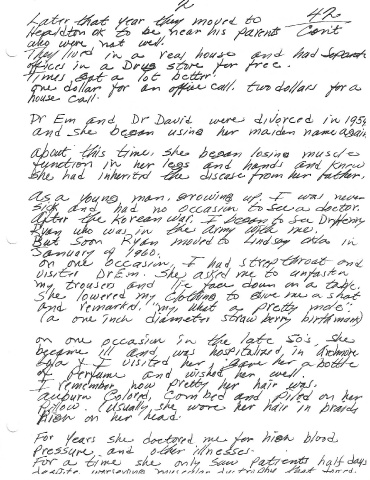 2
42
Con't
Later that year they moved to
Healdton OK to be near his parents
who were not well.
They lived in a real house and had
offices in a Drug store for free.
Times got a lot better.
one dollar for an office call. two dollars for a
house call.
Dr Em and Dr David were divorced in 1954
and she began using her maiden name again.
about this time she began losing muscle
function in her legs and hands and knew
she had inherited the disease from her father.
As a young man, growing up, I was never
sick and had no occasion to see a doctor.
After the Korean war, I began to see Dr
Ryan who was in the army with me.
But soon Ryan moved to Lindsay Okla in
January of 1960.
on one occasion, I had strep throat and
visited Dr Em. She asked me to unfasten
my trousers and lie face down on a table.
She lowered my clothing to give me a shot
and remarked, "my, what a pretty mole".
(a one inch diameter strawberry birthmark)
on one occasion in the late 50s, she
became ill and was hospitalized, in Ardmore
Okla. I visited her, gave her a bottle
of perfume and wished her well.
I remember how pretty her hair was.
auburn Colored, Combed and piled on her
pillow. Usually she wore her hair in braids
high on her head.
For years she doctored me for high blood
pressure and other illnesses.
For a time she only saw patients half days
despite